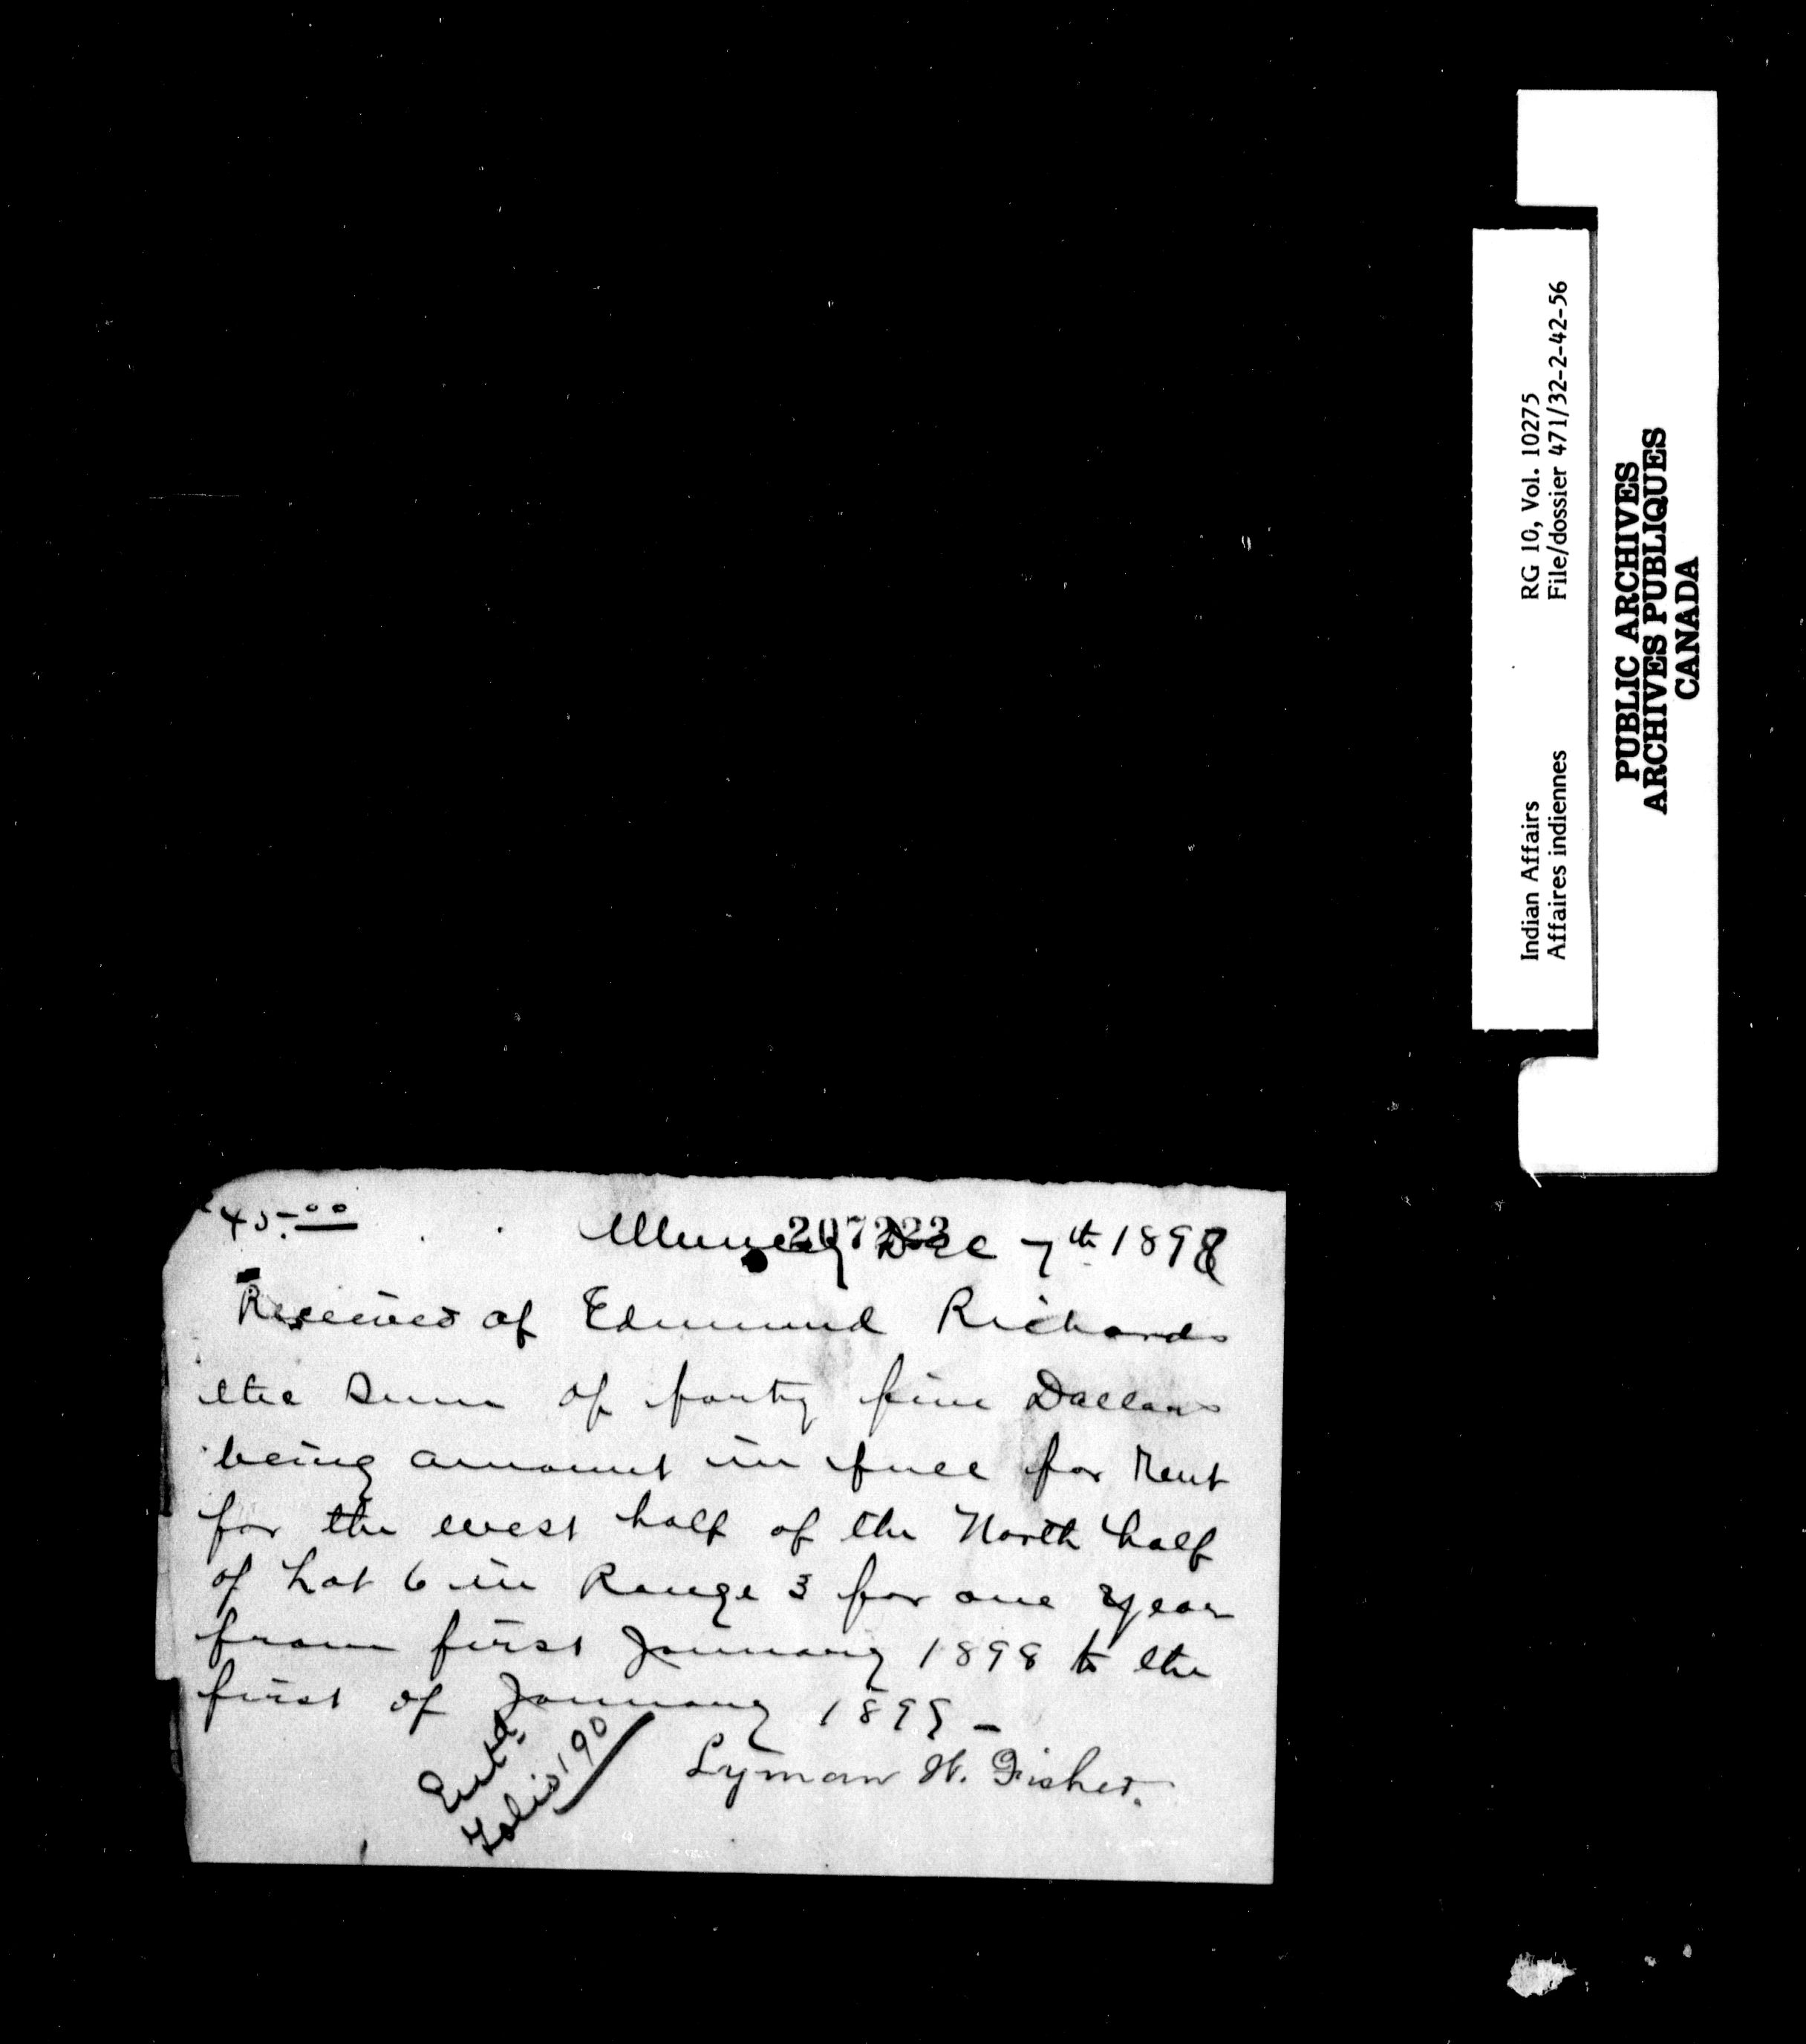 45.00
207223
Muncey Dec 7th 1898
Received of Edmund Richards
the Sum of forty five Dollars
being amount in full for Rent
for the west half of the North half
of Lot 6 in Range 3 for one year
from first January 1898 to the
first of January 1899 -
Lyman W. Fisher.
Entd.
Folio 190
Indian Affairs RG 10, Vol. 10275
Affaires indiennes File/dossier 471/32-2-42-56
PUBLIC ARCHIVES
ARCHIVES PUBLIQUES
CANADA